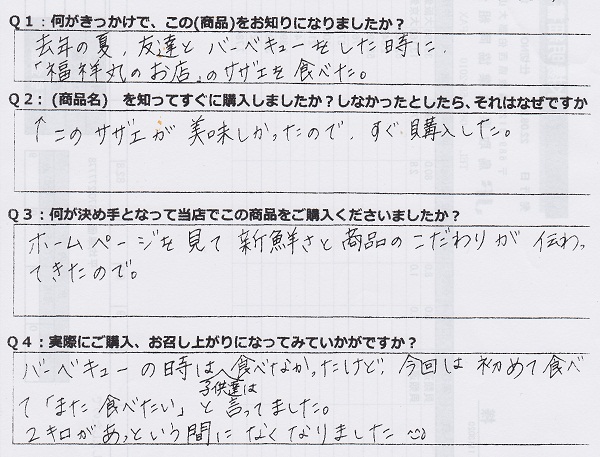 Q1:何がきっかけで、この(商品)をお知りになりましたか?
去年の夏、友達とバーベキューをした時に、
「福祥丸のお店」のサザエを食べた。
Q2:(商品名) を知ってすぐに購入しましたか?しなかったとしたら、それはなぜですか
↑このサザエが美味しかったので、すぐ購入した。
Q3:何が決め手となって当店でこの商品をご購入くださいましたか?
ホームページを見て新鮮さと商品のこだわりが伝わっ
てきたので。
Q4:実際にご購入、お召し上がりになってみていかがですか?
バーベキューの時は食べなかったけど、今回は初めて食べ
子供達は
て「また食べたい」と言ってました。
2キロがあっという間になくなりました